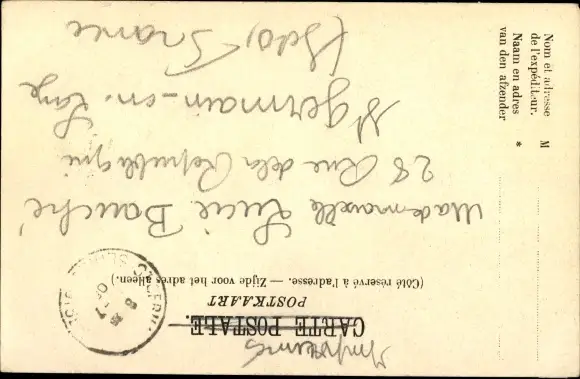 Imprimés
CARTE POSTALE
POSTKAART
(Côté réservé à l'adresse. — Zijde voor het adres alleen.)
Mademoiselle Lucie Bauché
28 Rue de la République
St Germain-en-Laye
France
Nom et adresse M
de l'expéditeur.
Naam en adres *
van den afzender